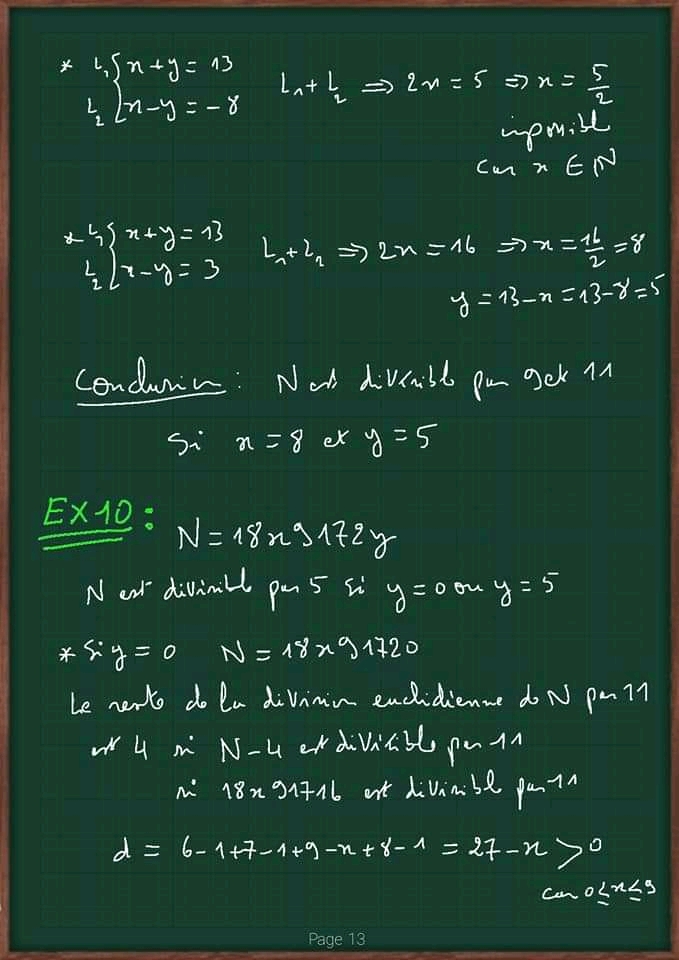 * L₁ { x + y = 13
L₂ { x - y = - 8
L₁ + L₂ ⇒ 2x = 5 ⇒ x = 5/2
impossible
car x ∈ ℕ
* L₁ { x + y = 13
L₂ { x - y = 3
L₁ + L₂ ⇒ 2x = 16 ⇒ x = 16/2 = 8
y = 13 - x = 13 - 8 = 5
Conclusion : N est divisible par 9 et 11
Si x = 8 et y = 5
EX10 :
N = 18x9172y
N est divisible par 5 si y = 0 ou y = 5
* Si y = 0 N = 18x91720
Le reste de la division euclidienne de N par 11
est 4 si N - 4 est divisible par 11
si 18x91716 est divisible par 11
d = 6 - 1 + 7 - 1 + 9 - x + 8 - 1 = 27 - x > 0
car 0 ≤ x ≤ 9
Page 13